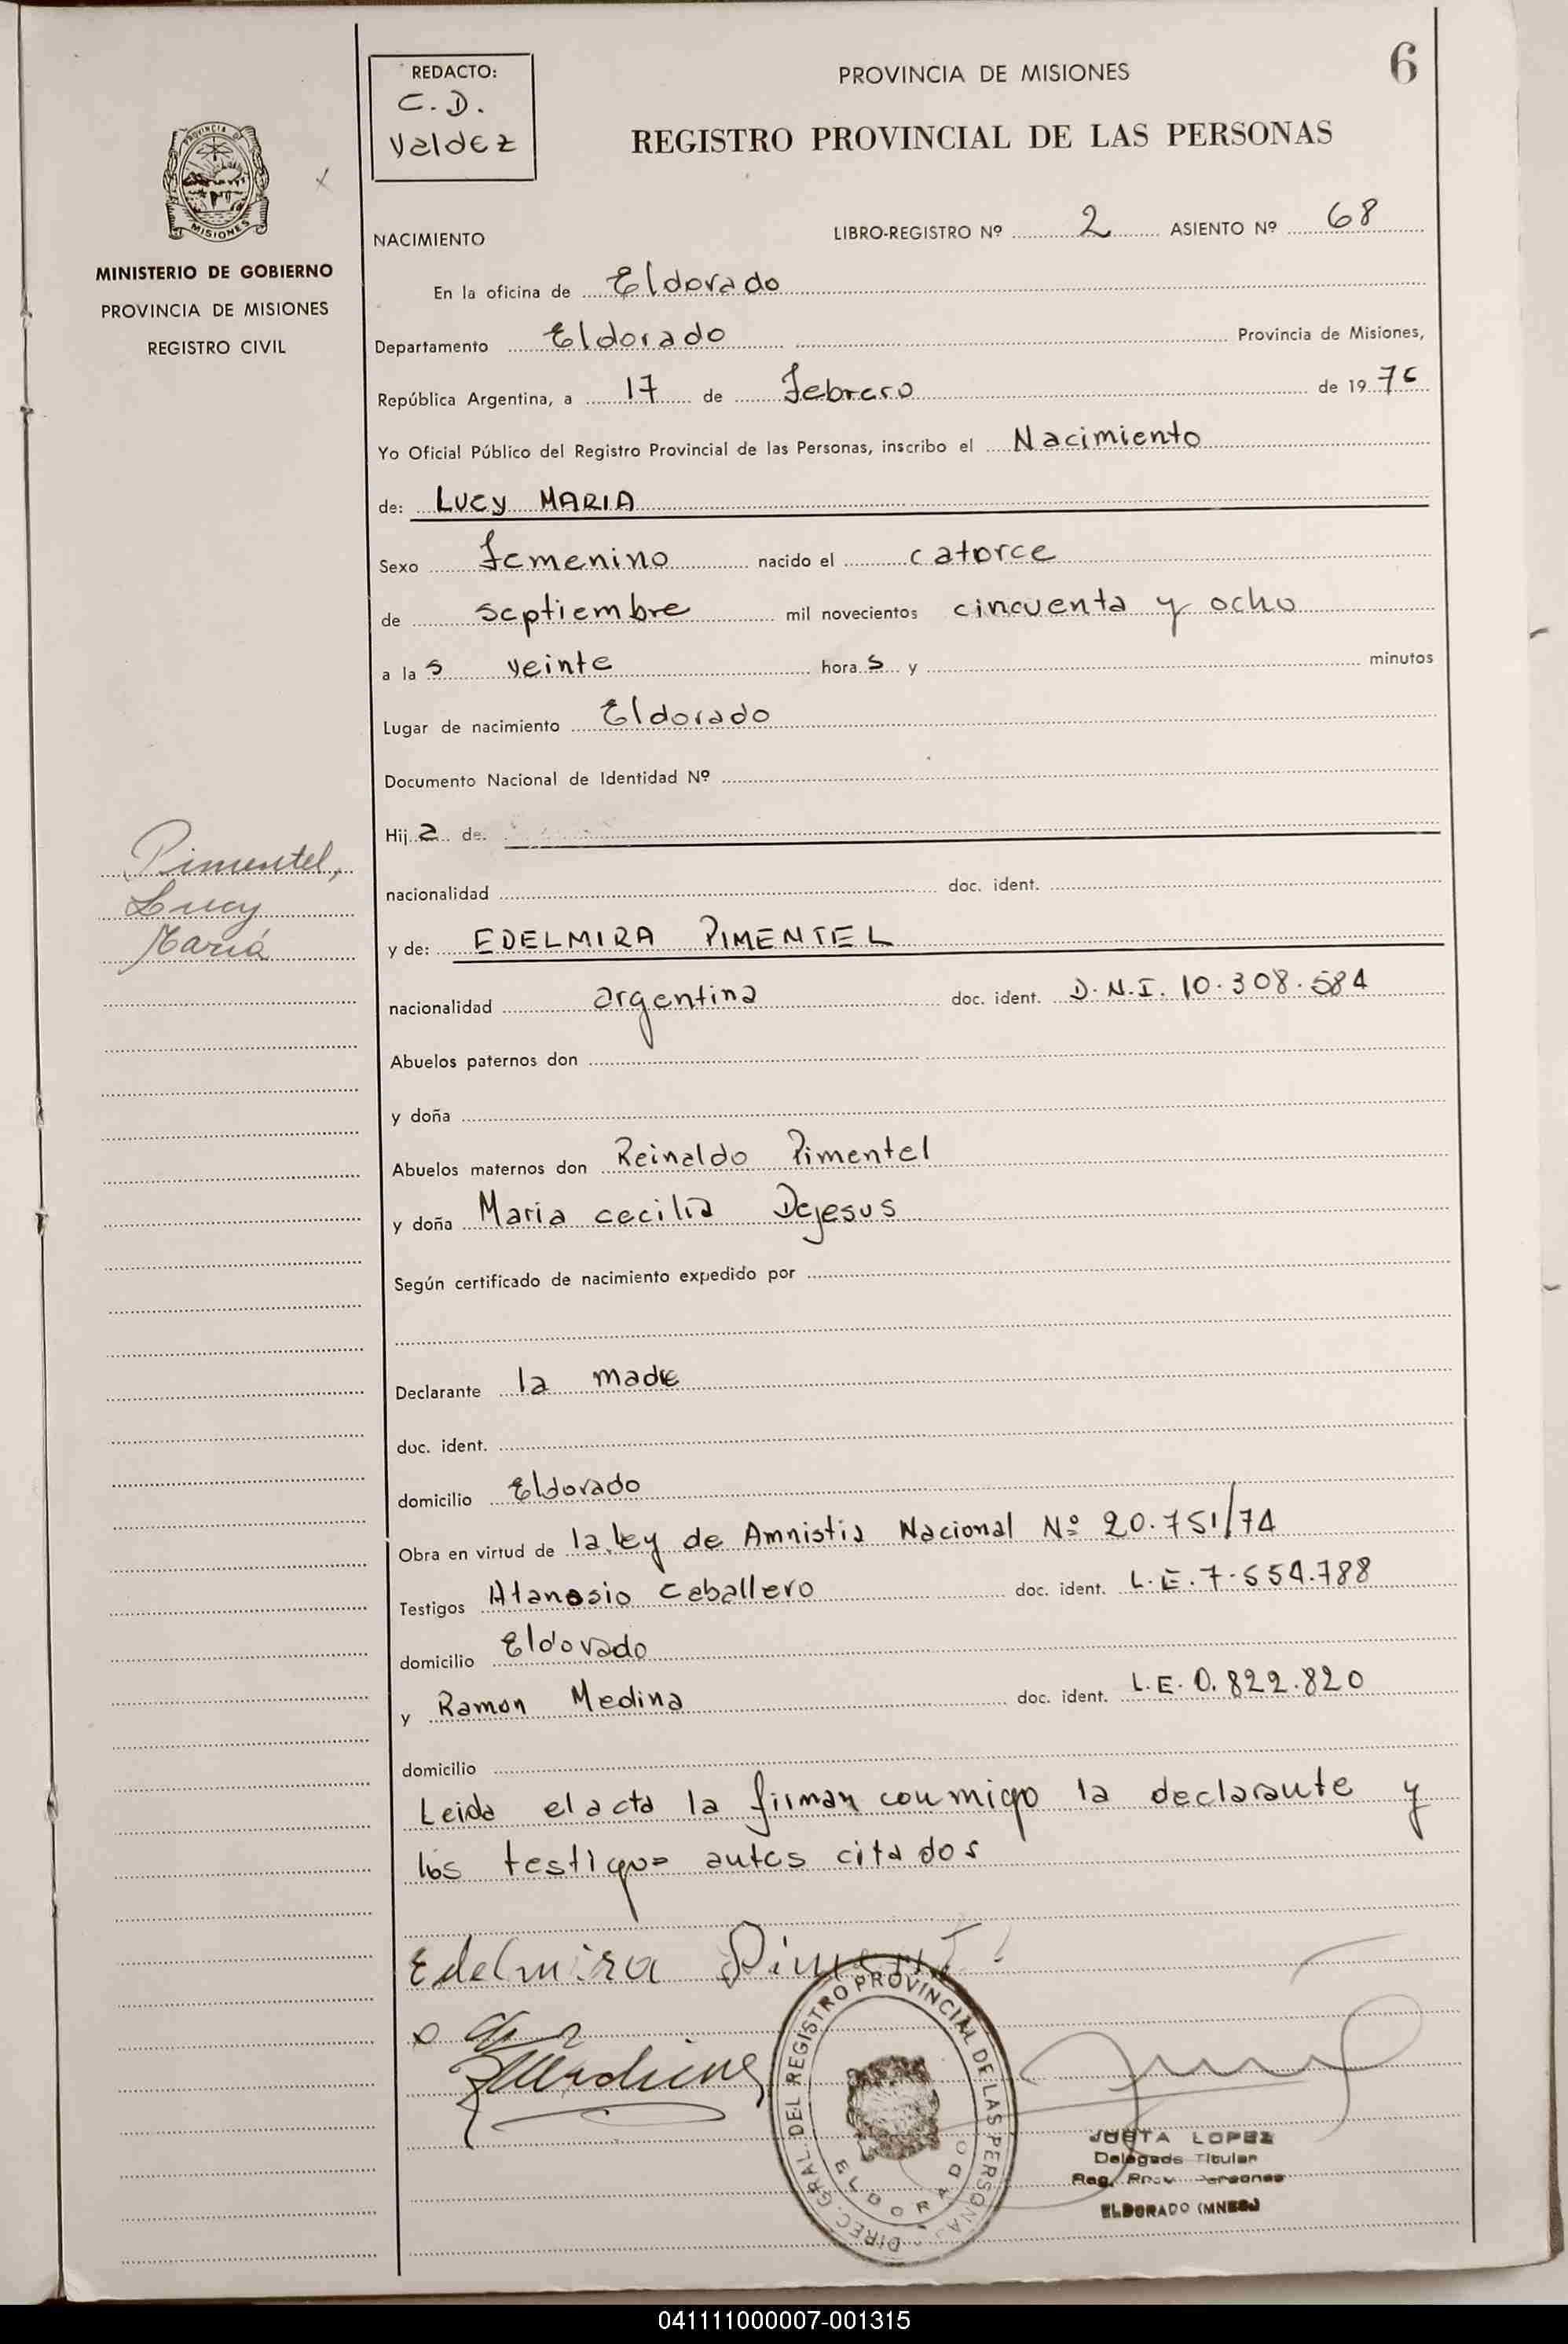 6
REDACTO:
C. D.
Valdez
PROVINCIA DE MISIONES
REGISTRO PROVINCIAL DE LAS PERSONAS
PROVINCIA DE
MISIONES
MINISTERIO DE GOBIERNO
PROVINCIA DE MISIONES
REGISTRO CIVIL
NACIMIENTO
LIBRO-REGISTRO Nº 2 ASIENTO Nº 68
En la oficina de Eldorado
Departamento Eldorado Provincia de Misiones,
República Argentina, a 17 de Febrero de 19 76
Yo Oficial Público del Registro Provincial de las Personas, inscribo el Nacimiento
de: LUCY MARIA
Sexo Femenino nacido el catorce
de septiembre mil novecientos cincuenta y ocho
a la s veinte hora s y minutos
Lugar de nacimiento Eldorado
Documento Nacional de Identidad Nº
Hij a de.
Pimentel,
Lucy
María
nacionalidad doc. ident.
y de: EDELMIRA PIMENTEL
nacionalidad argentina doc. ident. D.N.I. 10.308.584
Abuelos paternos don
y doña
Abuelos maternos don Reinaldo Pimentel
y doña Maria cecilia Dejesus
Según certificado de nacimiento expedido por
Declarante la madre
doc. ident.
domicilio Eldorado
Obra en virtud de la ley de Amnistia Nacional Nº 20.751/74
Testigos Atanasio Caballero doc. ident. L.E. 7.554.788
domicilio Eldorado
y Ramon Medina doc. ident. L.E. 0.822.820
domicilio
Leida el acta la firman conmigo la declarante y
los testigos antes citados
Edelmira Pimentel
DIREC. GRAL. DEL REGISTRO PROVINCIAL DE LAS PERSONAS
ELDORADO
JUSTA LOPEZ
Delegada Titular
Reg. Prov. Personas
ELDORADO (MNES.)
041111000007-001315